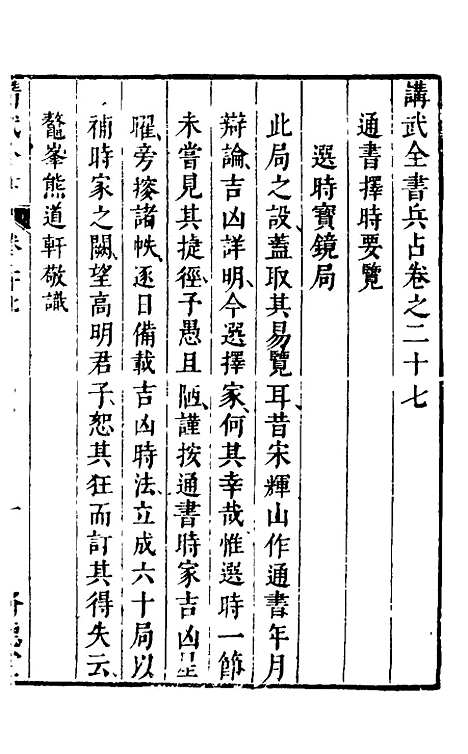 講武全書兵占卷之二十七
通書擇時要覽
選時寳鏡局
此局之設蓋取其易覽耳昔宋輝山作通書年月
辯論吉凶詳明今選擇家何其幸哉惟選時一節
未嘗見其捷徑予愚且陋謹按通書時家吉凶星
曜旁搜諸帙逐日備載吉凶時法立成六十局以
補時家之闕望高明君子恕其狂而訂其得失云
鼇峯熊道軒敬識